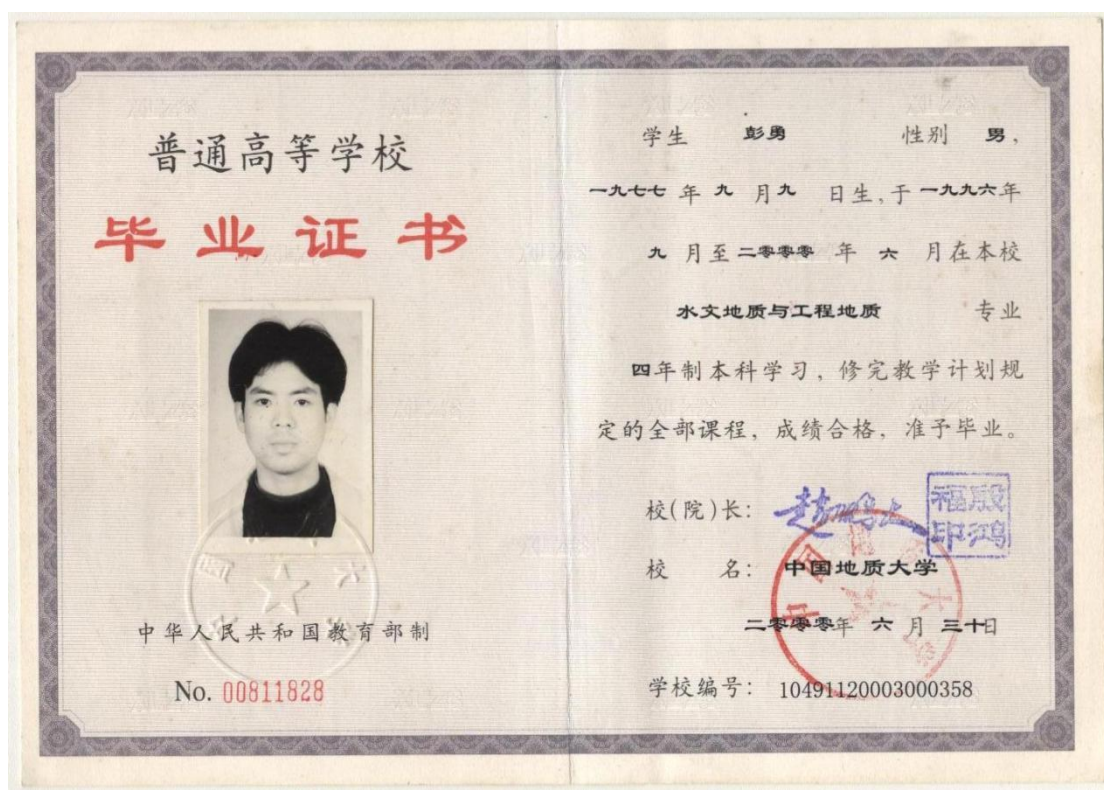 普通高等学校
毕业证书
中华人民共和国教育部制
No. 00811828
学生 彭勇 性别 男,
一九七七 年 九 月 九 日生,于 一九九六年
九 月至 二零零零 年 六 月在本校
水文地质与工程地质 专业
四年制本科学习，修完教学计划规
定的全部课程，成绩合格，准予毕业。
校(院)长： 赵鹏大 殷鸿福印
校 名： 中国地质大学
二零零零年 六 月 三十日
学校编号： 10491120003000358